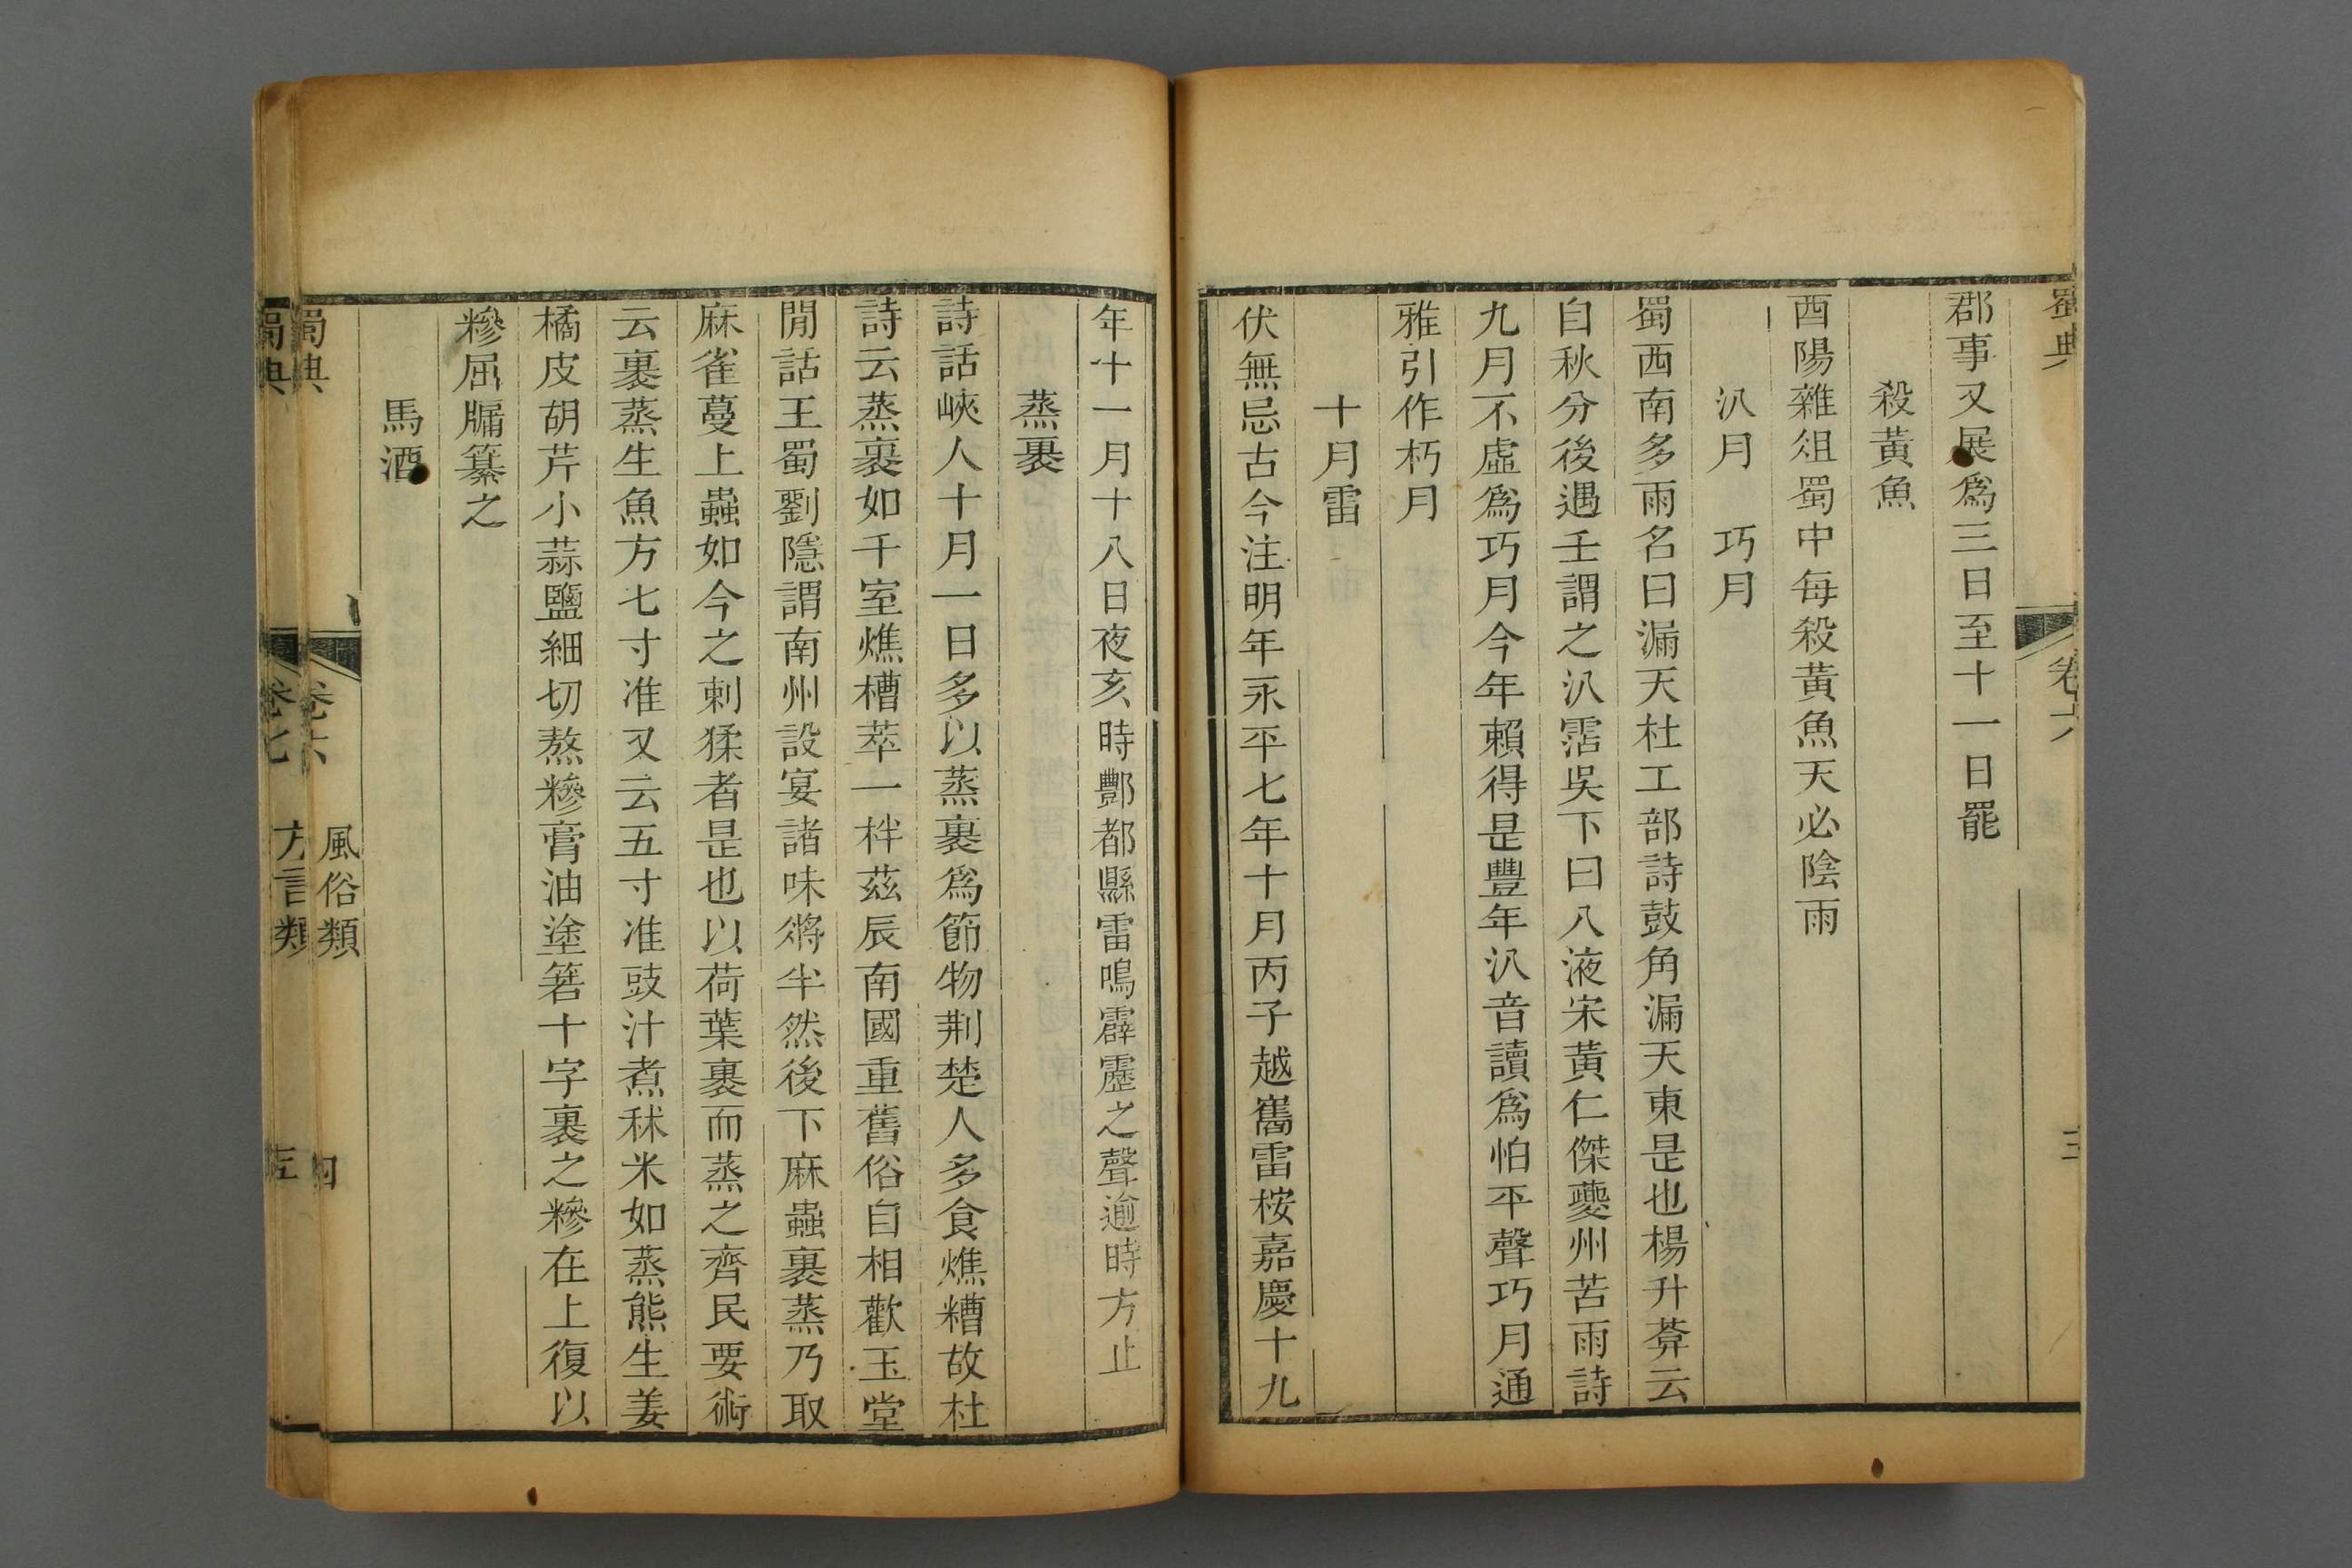 蜀典 卷六 三
郡事又展為三日至十一日罷
殺黃魚
酉陽雜俎蜀中每殺黃魚天必陰雨
汃月 巧月
蜀西南多雨名曰漏天杜工部詩鼓角漏天東是也楊升菴云
自秋分後遇壬謂之汃霑吳下曰八液宋黃仁傑夔州苦雨詩
九月不虛爲巧月今年賴得是豐年汃音讀爲怕平聲巧月通
雅引作朽月
十月雷
伏無忌古今注明年永平七年十月丙子越雟雷桉嘉慶十九
年十一月十八日夜亥時酆都縣雷鳴霹靂之聲逾時方止
蒸裹
詩話峽人十月一日多以蒸裹爲節物荆楚人多食燋糟故杜
詩云蒸裹如千室燋槽萃一柈茲辰南國重舊俗自相歡玉堂
閒話王蜀劉隱謂南州設宴諸味將半然後下麻蟲裹蒸乃取
麻雀蔓上蟲如今之刺猱者是也以荷葉裹而蒸之齊民要術
云裹蒸生魚方七寸准又云五寸准豉汁煮秫米如蒸熊生姜
橘皮胡芹小蒜鹽細切熬糝膏油塗箬十字裹之糝在上復以
糝屈牖纂之
馬酒
蜀典 卷六 風俗類 四
蜀典 卷七 方言類